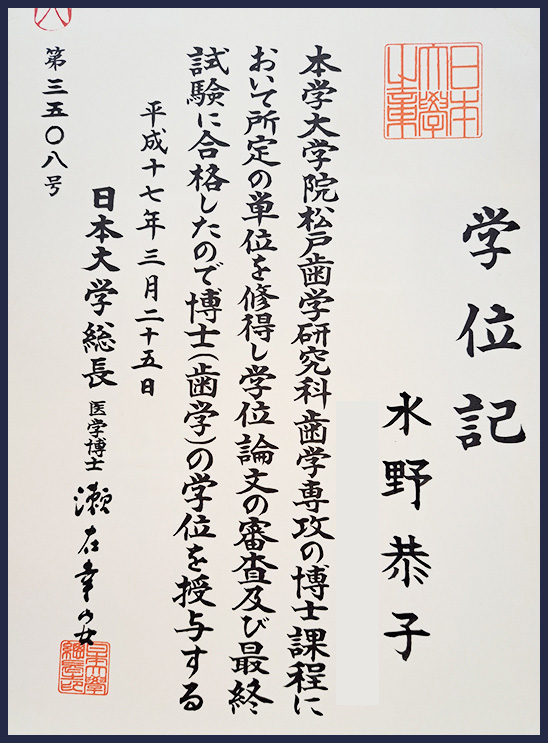 日本大學之章
学位記
水野恭子
本学大学院松戸歯学研究科歯学専攻の博士課程に
おいて所定の単位を修得し学位論文の審査及び最終
試験に合格したので博士(歯学)の学位を授与する
平成十七年三月二十五日
日本大学総長 医学博士 瀬在幸安
第三五〇八号